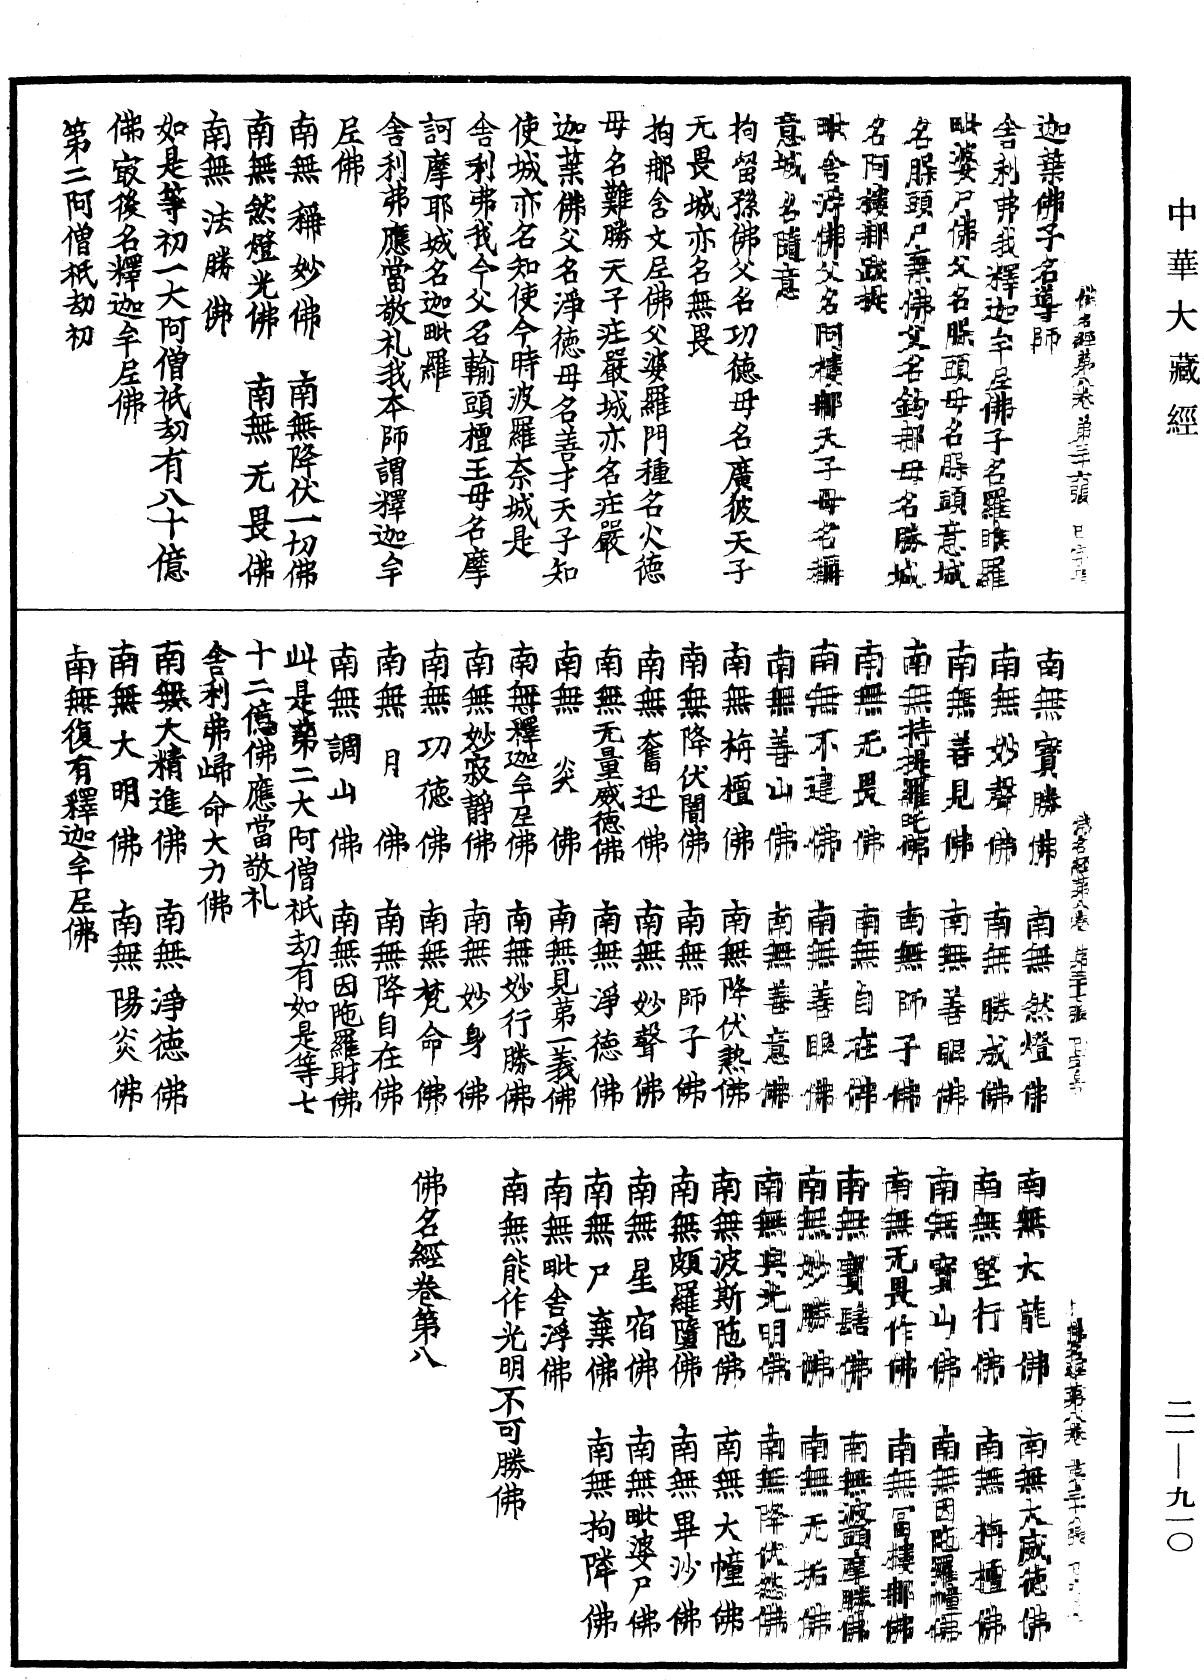 中華大藏經
迦葉佛子名導師
舍利弗我釋迦牟尼佛子名羅睺羅
毗婆尸佛父名槃頭母名槃頭意城
名槃頭尸棄佛父名鈎那母名勝城
名阿樓那跋提
毗舍浮佛父名阿樓那天子母名稱
意城名隨意
拘留孫佛父名功德母名廣彼天子
无畏城亦名無畏
拘那含文尼佛父婆羅門種名火德
母名難勝天子莊嚴城亦名莊嚴
迦葉佛父名淨德母名善才天子知
使城亦名知使今時波羅奈城是
舍利弗我今父名輸頭檀王母名摩
訶摩耶城名迦毗羅
舍利弗應當敬礼我本師謂釋迦牟
尼佛
南無稱妙佛　南無降伏一切佛
南無然燈光佛　南無无畏佛
南無法勝佛
如是等初一大阿僧祇劫有八十億
佛㝡後名釋迦牟尼佛
第二阿僧祇劫初
南無寶勝佛　南無然燈佛
南無妙聲佛　南無勝成佛
南無善見佛　南無善眼佛
南無持提羅吒佛　南無師子佛
南無无畏佛　南無自在佛
南無不違佛　南無善眼佛
南無善山佛　南無善意佛
南無栴檀佛　南無降伏熱佛
南無降伏闇佛　南無師子佛
南無奮迅佛　南無妙聲佛
南無无量威德佛　南無淨德佛
南無炎佛　南無見第一義佛
南無釋迦牟尼佛　南無妙行勝佛
南無妙寂靜佛　南無妙身佛
南無功德佛　南無梵命佛
南無月佛　南無降自在佛
南無調山佛　南無因陁羅財佛
此是第二大阿僧祇劫有如是等七
十二億佛應當敬礼
舍利弗歸命大力佛
南無大精進佛　南無淨德佛
南無大明佛　南無陽炎佛
南無復有釋迦牟尼佛
南無大龍佛　南無大威德佛
南無堅行佛　南無栴檀佛
南無寶山佛　南無因陁羅幢佛
南無无畏作佛　南無富樓那佛
南無寶髻佛　南無波頭摩勝佛
南無妙勝佛　南無无垢佛
南無與光明佛　南無降伏怨佛
南無波斯陁佛　南無大幢佛
南無頗羅墮佛　南無畢沙佛
南無星宿佛　南無毗婆尸佛
南無尸棄佛　南無拘隣佛
南無毗舍浮佛
南無能作光明不可勝佛
佛名經卷第八
二一—九一〇